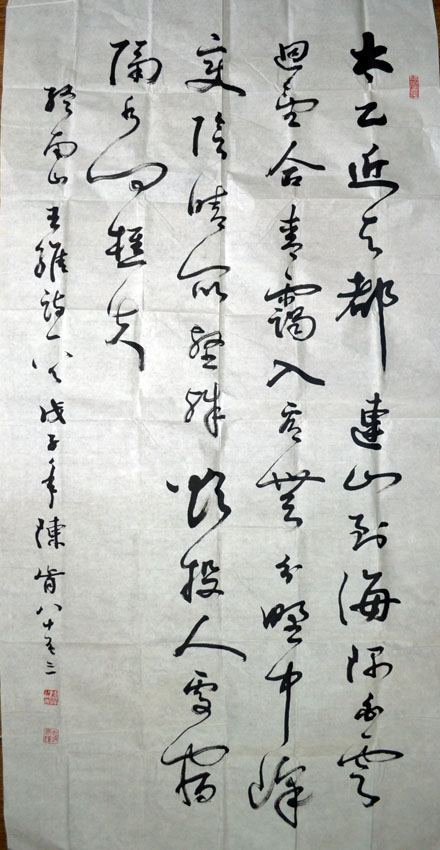 太乙近天都連山到海隅白雲
迴望合青靄入看無分野中峰
變陰晴众壑殊欲投人處宿
隔水问樵夫
終南山王維詩一首戊子年陳肯八十又三